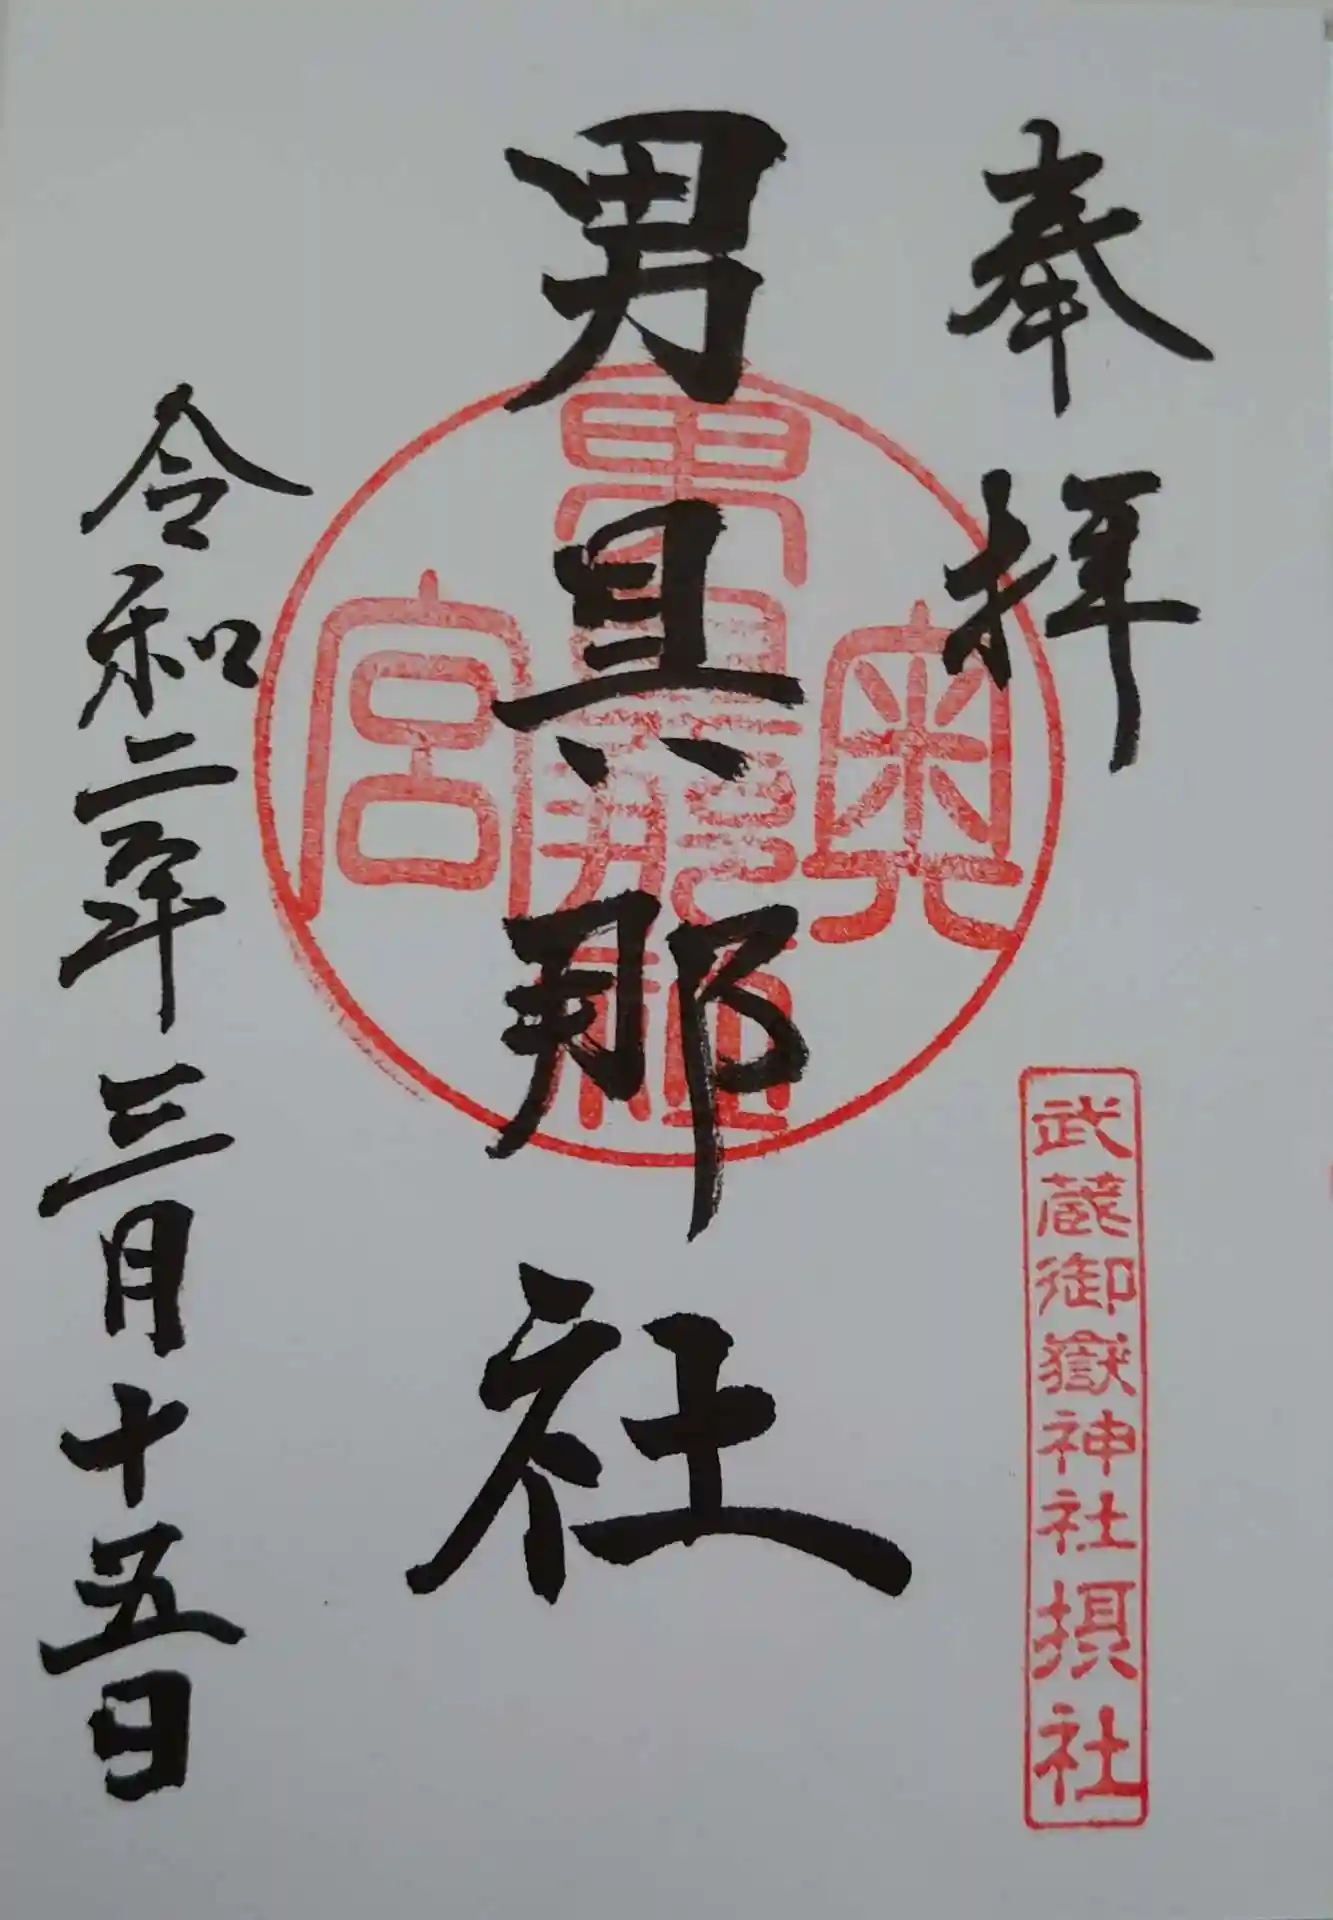 奉拝
武蔵御嶽神社摂社
男具那社
奥
男具那社
宮
令和二年三月十五日